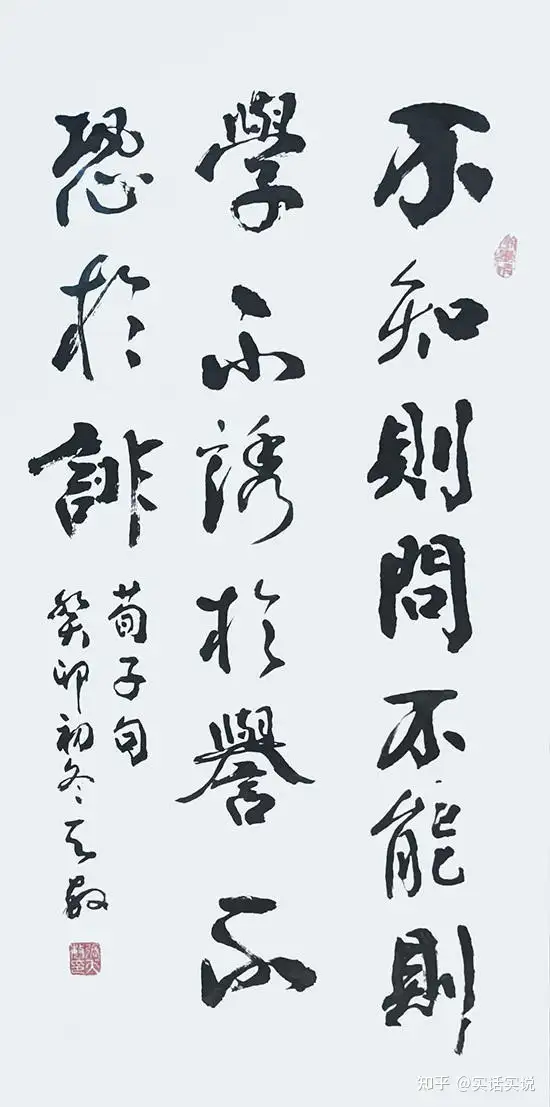 不知則問不能則
學不誘於譽不
恐於誹
荀子句
癸卯初冬天敏
知乎 @实话实说